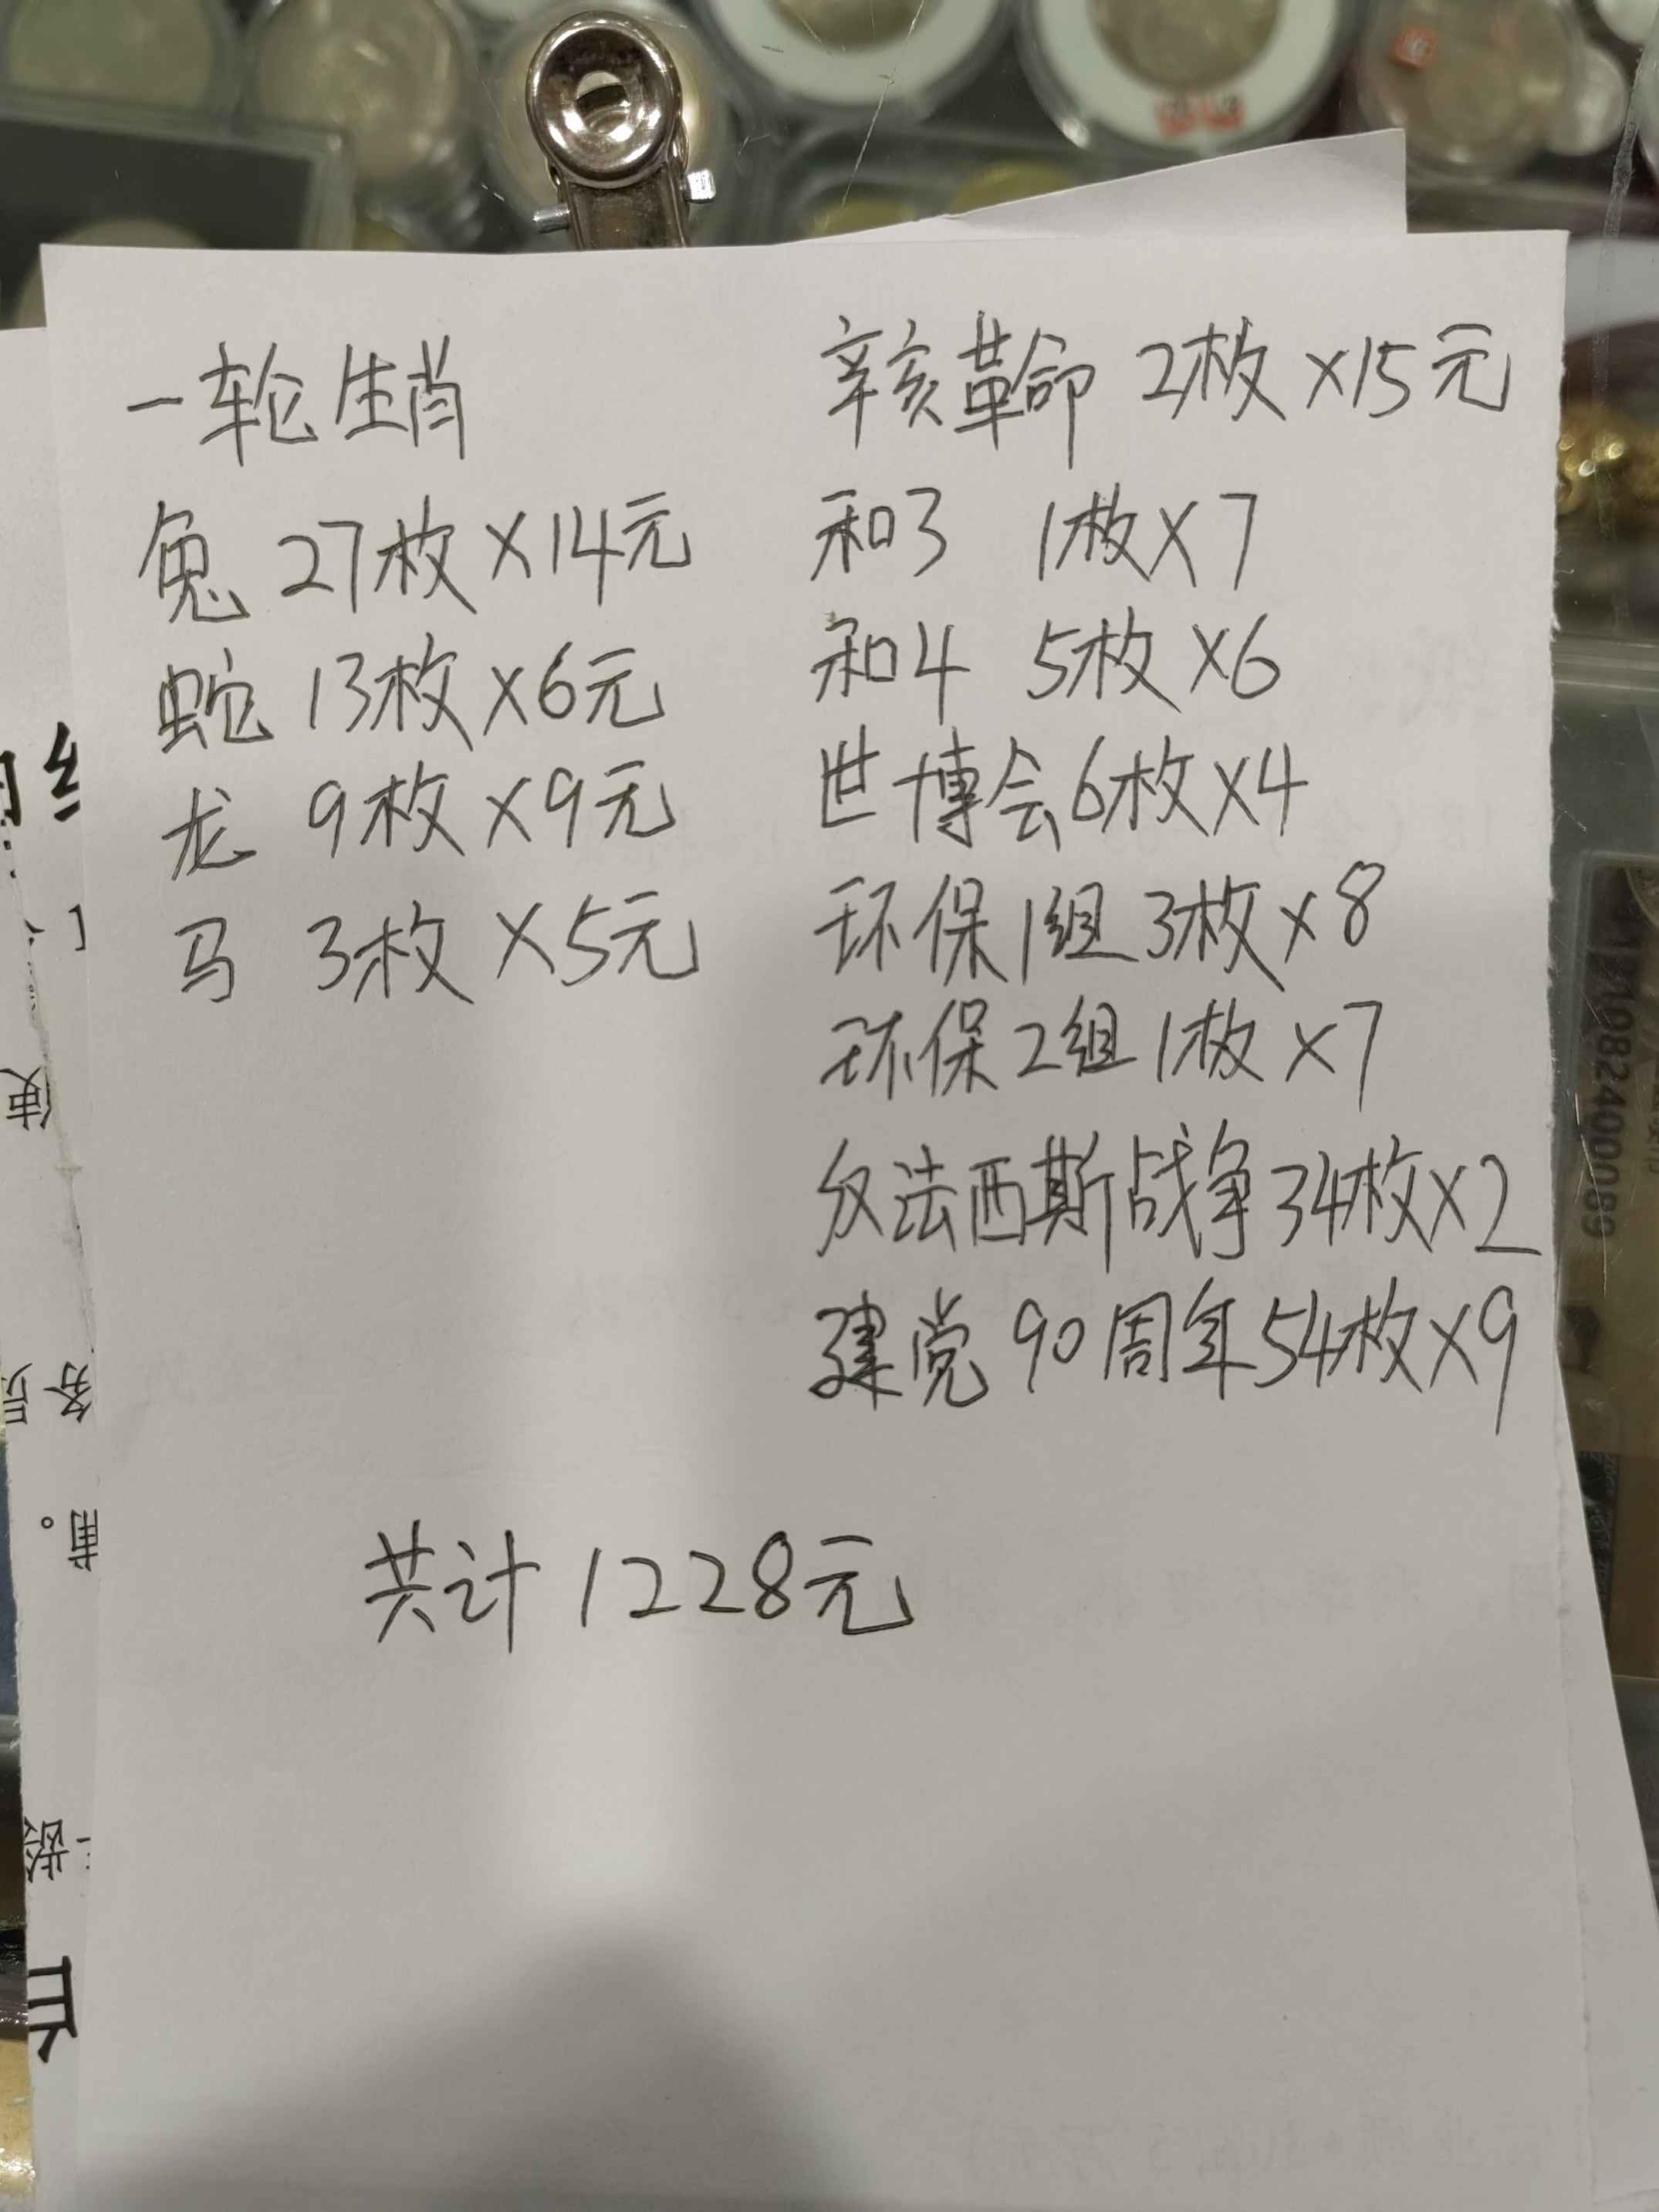 一轮生肖
兔 27枚×14元
蛇 13枚×6元
龙 9枚×9元
马 3枚×5元
辛亥革命 2枚×15元
和3 1枚×7
和4 5枚×6
世博会6枚×4
环保1组 3枚×8
环保2组 1枚×7
反法西斯战争34枚×2
建党90周年54枚×9
共计1228元